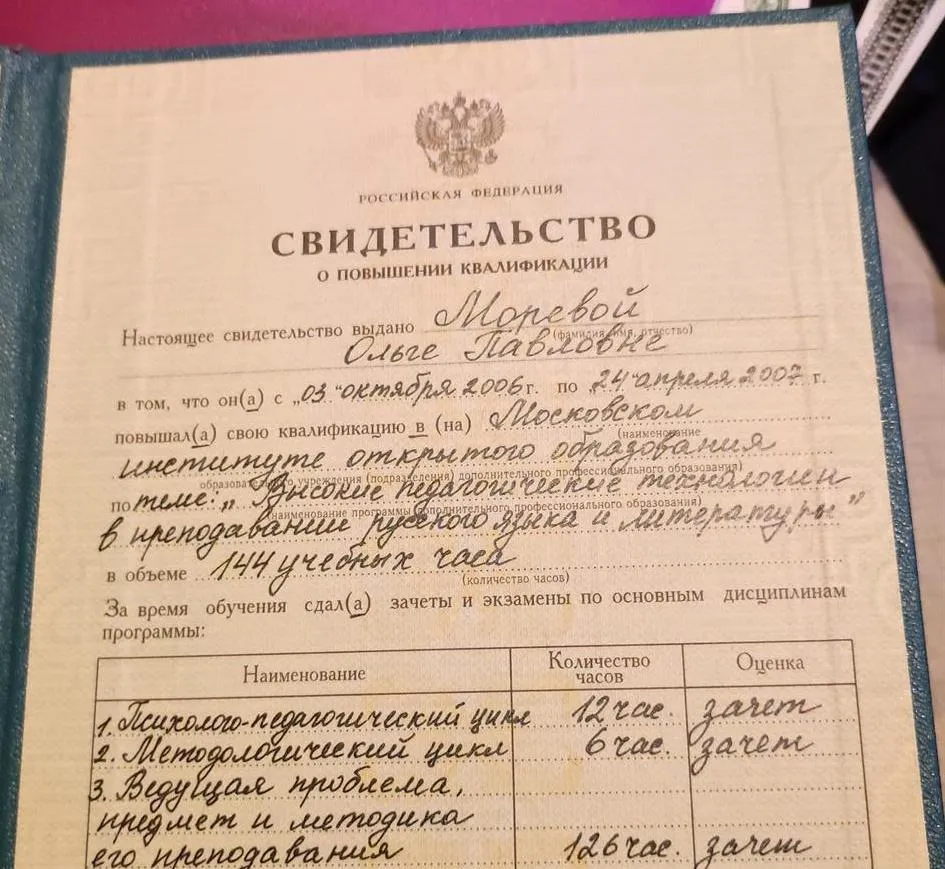 РОССИЙСКАЯ ФЕДЕРАЦИЯ
СВИДЕТЕЛЬСТВО
О ПОВЫШЕНИИ КВАЛИФИКАЦИИ
Настоящее свидетельство выдано Моревой
(фамилия, имя, отчество)
Ольге Павловне
в том, что он(а) с „03" октября 2006 г. по „24" апреля 2007 г.
повышал(а) свою квалификацию в (на) Московском
(наименование
институте открытого образования
образовательного учреждения (подразделения) дополнительного профессионального образования)
по теме: „Высокие педагогические технологии
(наименование программы дополнительного профессионального образования)
в преподавании русского языка и литературы"
в объеме 144 учебных часа
(количество часов)
За время обучения сдал(а) зачеты и экзамены по основным дисциплинам
программы:
Наименование Количество часов Оценка
1. Психолого-педагогический цикл 12 час. зачет
2. Методологический цикл 6 час. зачет
3. Ведущая проблема,
предмет и методика
его преподавания 126 час. зачет